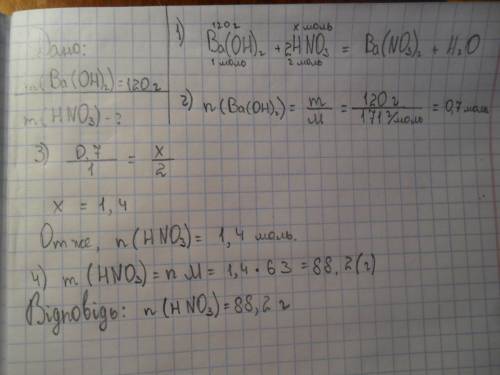 Дано:
m(Ba(OH)₂)=120г
m(HNO₃)-?
1) Ba(OH)₂ + 2HNO₃ = Ba(NO₃)₂ + H₂O
120г x моль
1 моль 2 моль
2) n(Ba(OH)₂) = m/M = 120 г/171 г/моль = 0,7 моль
3) 0,7/1 = x/2
x = 1,4
Отже, n(HNO₃) = 1,4 моль.
4) m(HNO₃) = n M = 1,4 • 63 = 88,2(г)
Відповідь: n(HNO₃) = 88,2 г